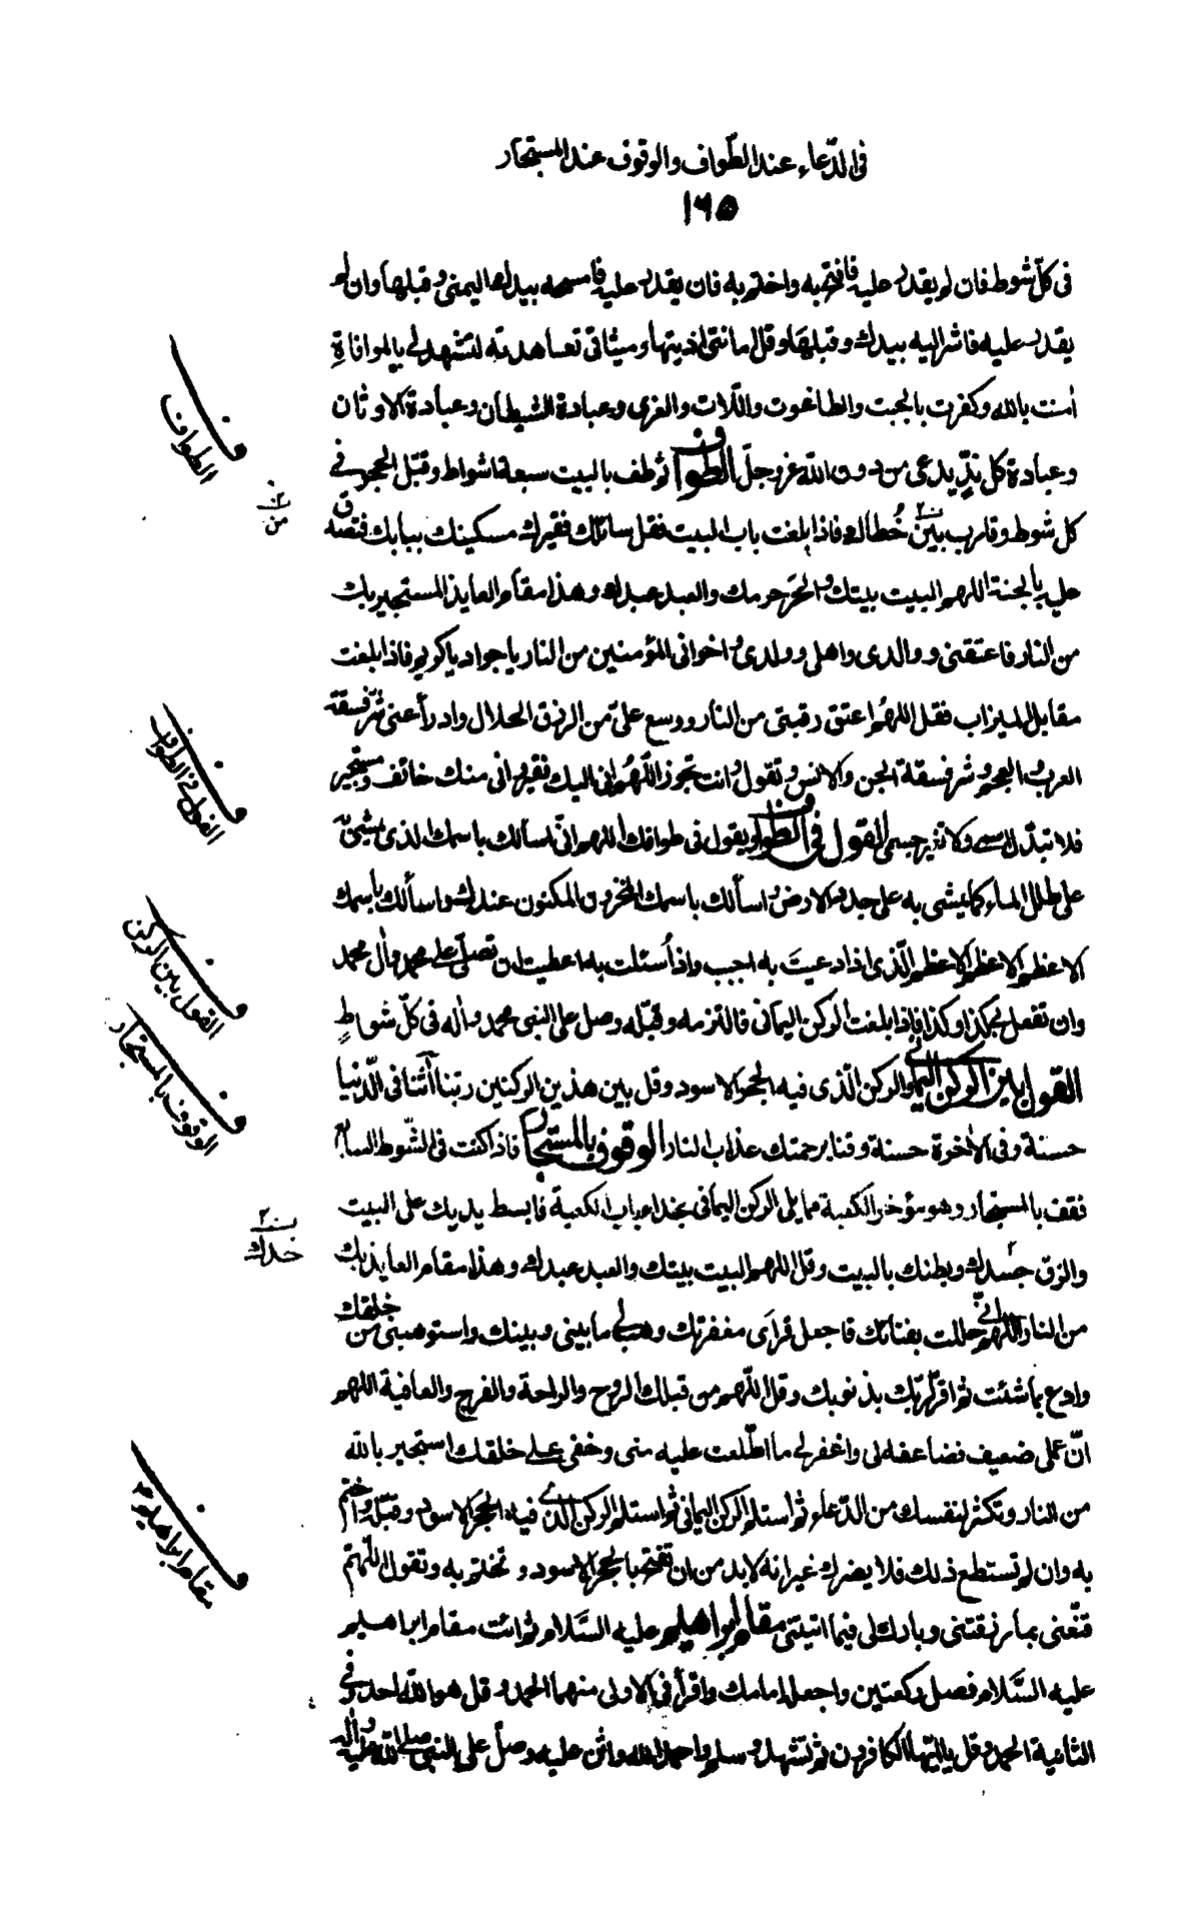 فى الدّعاء عند الطّواف والوقوف عند المستجار
١٦٥
فى كلّ شوط فان لم يقدر عليه فافتح به واختم به فان يقدر عليه فامسحه بيدك اليمنى وقبلها وان لم
يقدر عليه فاشر اليه بيدك وقبلها وقل امانتى اديتها وميثاقى تعاهدته لتشهد لى بالموافاةِ
امنت بالله وكفرت بالجبت والطاغوت واللّات والعزى وعبادة الشيطان وعبادة الاوثان
وعبادة كل ندٍّ يدعى من دون اللّه عز وجلّ الطواف ثم طف بالبيت سبعة اشواط وقبّل الحجر فى
كل شوط وقارب بين خُطاك فاذا بلغت باب البيت فقل سائلك فقيرك مسكينك ببابك فتصدق
عليه بالجنة اللهم البيت بيتك والحرم حرمك والعبد عبدك وهذا مقام العايذ المستجير بك
من النار فاعتقنى ووالدى واهلى وولدى واخوانى المؤمنين من النار يا جواد يا كريم فاذا بلغت
مقابل الميزاب فقل اللهُم اعتق رقبتى من النار ووسع علىّ من الرزق الحلال وادرأ عنى شر فسقة
العرب والعجم وشر فسقة الجن والانس وتقول وانت تجوز اللّهُم انى اليك فقير وانى منك خائف ومستجير
فلا تبدّل اسمى ولا تغير جسمى القول فى الطواف ويقول فى طوافك اللهم انّى اسالك باسمك الذى يمشىٰ به
على طلل الماء كما يمشى به على جدد الارض واسألك باسمك المخزون المكنون عندك واسألك باسمك
الاعظم الاعظم الاعظم الّذى اذا دعيتَ به اجبت واذا سُئلت به اعطيت ان تصلّى على محمد وال محمد
وان تفعل بى كذا وكذا فاذا بلغت الركن اليمانى فالتزمه وقبّله وصل على النبى محمد واله فى كلّ شوطٍ
القول بين الركن اليمانى والركن الّذى فيه الحجر الاسود وقل بين هذين الركنين ربّنا آتنا فى الدّنيا
حسنة وفى الاخرة حسنة وقنا برحمتك عذاب النار الوقوف بالمستجار فاذا كنت فى الشّوط السابع
فقف بالمستجار وهو مؤخر الكعبة مما يلى الركن اليمانى بحذاء باب الكعبة فابسط يديك على البيت
والزق جسدك وبطنك بالبيت وقل اللهم البيت بيتك والعبد عبدك وهذا مقام العايذ بك
من النار اللهم انّى حللت بفنائك فاجعل قراى مغفرتك وهب لى ما بينى وبينك واستوهبنى من خلقك
وادع بما شئت ثم اقرّ لربّك بذنوبك وقل اللّهم من قبلك الروح والراحة والفرج والعافية اللهم
انّ عملى ضعيف فضاعفه لى واغفر لى ما اطّلعت عليه منى وخفى على خلقك استجير بالله
من النار وتكثر لنفسك من الدّعاء ثم استلم الركن اليمانى ثم استلم الركن الذى فيه الحجر الاسود وقبّله واختم
به وان لم تستطع ذلك فلا يضرك غير انه لابد من ان تفتح بالحجر الاسود وتختم به وتقول اللّهمّ
قنّعنى بما رزقتنى وبارك لى فيما اتيتنى مقام ابراهيم عليه السَّلام ثم ائت مقام ابراهيم
عليه السَّلام فصل ركعتين واجعله امامك واقرأ فى الاولى منهما الحمد وقل هو اللّه احد وفى
الثانية الحمد وقل يا ايّها الكافرون ثم تشهد وسلم واحمد اللّه واثن عليه وصلّ على النبى صلى اللّه عليه واله
الطواف
من
القول فى الطواف
القول بين الركن
الوقوف بالمستجار
خدك
مقام ابراهيم ع